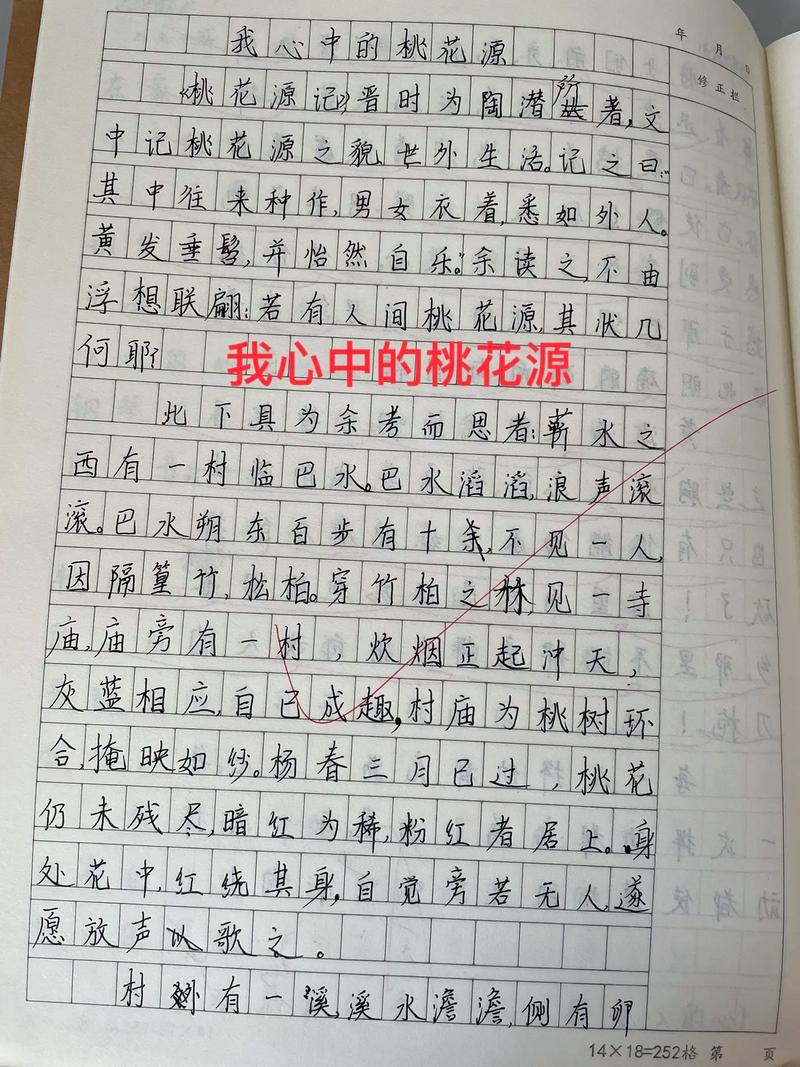 年 月 日
修正栏
我心中的桃花源
《桃花源记》晋时为陶潜所著,文
中记桃花源之貌、世外生活。记之曰:“
其中往来种作,男女衣着,悉如外人。
黄发垂髫,并怡然自乐。”余读之,不由
浮想联翩:若有人间桃花源,其状几
何耶?
我心中的桃花源
此下具为余考而思者:蕲水之
西有一村临巴水。巴水滔滔,浪声滚
滚。巴水朔东百步有十余,不见一人,
因隔篁竹,松柏。穿竹柏之林,见一寺
庙,庙旁有一村,炊烟正起冲天,
灰蓝相应,自已成趣,村庙为桃树环
合,掩映如纱。杨春三月已过,桃花
仍未残尽,暗红为稀,粉红者居上。身
处花中,红绕其身,自觉旁若无人,遂
愿放声以歌之。
村 有一溪,溪水澹澹,侧有卵
14×18=252格 第 页